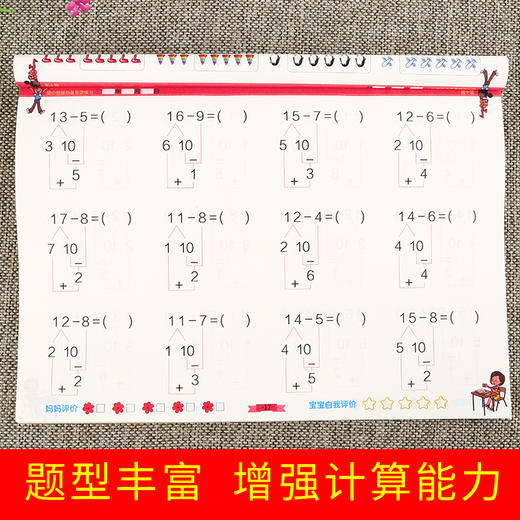 年 月 日
13-5=( ) 16-9=( ) 15-7=( ) 12-6=( )
3 10 6 10 5 10 2 10
- - - -
5 1 3 4
+ + + +
17-8=( ) 11-8=( ) 12-4=( ) 14-6=( )
7 10 1 10 2 10 4 10
- - - -
2 2 6 4
+ + + +
12-8=( ) 11-7=( ) 14-5=( ) 15-8=( )
2 10 1 10 4 10 5 10
- - - -
2 3 5 2
+ + + +
妈妈评价 17 宝宝自我评价
题型丰富 增强计算能力